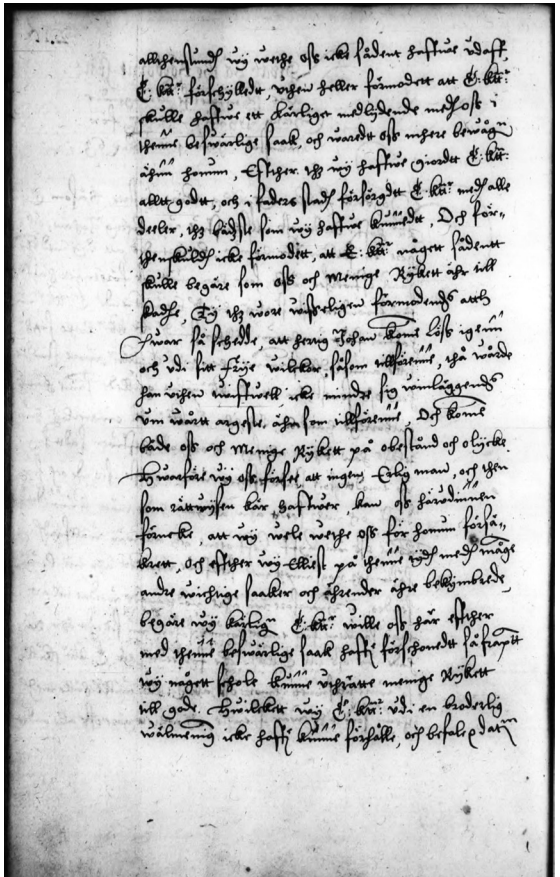 allthenstund wij wethe oss icke sådent haffue vdaff
E: ktt: förschylledt, vthen heller förmodett att E: ktt:
skulle haffue ett kärligit medlydende medh oss i
thenne beswärlige saak, och waredt oss mhere bewågn
ähnn honum, Effther thz wij haffue giordtt E: ktt:
alltt godtt, och i faders stadh försörgdtt E: ktt: medh alle
deeler, thz bådzste som wij haffue kunnedt, Och för-
thenskuldh icke förmodett, att E: ktt: någett sådentt
skulle begäre som oss och Menige Rijkett åhr till
skadhe, Ty thz wore wisseligen förmodends atth
hwar så schedde, att hertig Johan komme löss igenn
och vdi sitt frije wilckor, såsom tillförenne, thå worde
han vthen twiffwell icke mindre sig vinläggendes
um wårtt argeste, ähn som tillförenne, Och komme
både oss och Menige Rijkett på obestånd och olycke
Hwarföre wij oss förse, att ingen Erlig man, och then
som rättwijsen kär haffwer, kan oss härvdinnen
förtencke, att wij wele wethe oss för honum försä-
krett, och effther wij Elliest på thenne tijdh medh månge
andre wichtige saaker och ährender ähre bekymbrede,
begäre wij kärlign E: ktt: wille oss här effther
med thenne beswärlige saak haffue förschonedt så framtt
wij någett schole kunne vthrätte menige Rijkett
till gode. Huilckett wij E: ktt: vdi en broderlig
wälmening icke haffue kunne förhålle, och befale datum